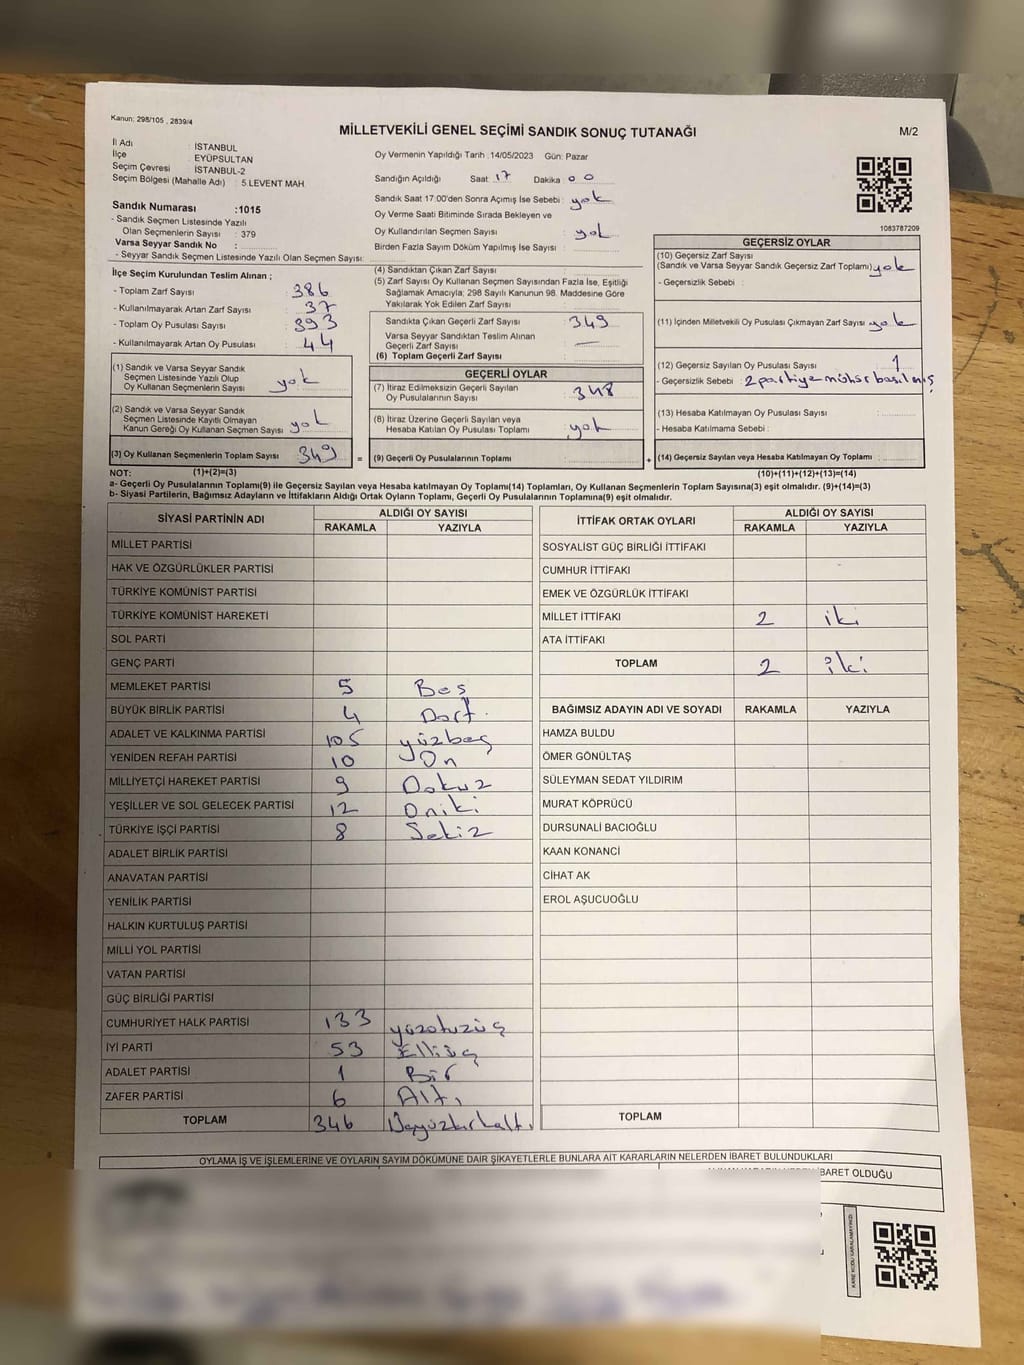 Kanun: 298/105 , 2839/4
MİLLETVEKİLİ GENEL SEÇİMİ SANDIK SONUÇ TUTANAĞI
M/2
İl Adı : İSTANBUL
İlçe : EYÜPSULTAN
Seçim Çevresi : İSTANBUL-2
Seçim Bölgesi (Mahalle Adı) : 5.LEVENT MAH.
Sandık Numarası :1015
- Sandık Seçmen Listesinde Yazılı
Olan Seçmenlerin Sayısı : 379
Varsa Seyyar Sandık No :
- Seyyar Sandık Seçmen Listesinde Yazılı Olan Seçmen Sayısı:
Oy Vermenin Yapıldığı Tarih :14/05/2023 Gün: Pazar
Sandığın Açıldığı Saat : 17 Dakika : 00
Sandık Saat 17:00'den Sonra Açımış İse Sebebi : yok
Oy Verme Saati Bitiminde Sırada Bekleyen ve
Oy Kullandırılan Seçmen Sayısı : yok
Birden Fazla Sayım Döküm Yapılmış İse Sayısı :
1083787209
İlçe Seçim Kurulundan Teslim Alınan ;
- Toplam Zarf Sayısı : 386
- Kullanılmayarak Artan Zarf Sayısı : 37
- Toplam Oy Pusulası Sayısı : 393
- Kullanılmayarak Artan Oy Pusulası : 44
(1) Sandık ve Varsa Seyyar Sandık
Seçmen Listesinde Yazılı Olup
Oy Kullanan Seçmenlerin Sayısı : yok
(2) Sandık ve Varsa Seyyar Sandık
Seçmen Listesinde Kayıtlı Olmayan
Kanun Gereği Oy Kullanan Seçmen Sayısı : yok
(3) Oy Kullanan Seçmenlerin Toplam Sayısı : 349
(4) Sandıktan Çıkan Zarf Sayısı :
(5) Zarf Sayısı Oy Kullanan Seçmen Sayısından Fazla İse, Eşitliği
Sağlamak Amacıyla; 298 Sayılı Kanunun 98. Maddesine Göre
Yakılarak Yok Edilen Zarf Sayısı :
Sandıkta Çıkan Geçerli Zarf Sayısı : 349
Varsa Seyyar Sandıktan Teslim Alınan
Geçerli Zarf Sayısı : —
(6) Toplam Geçerli Zarf Sayısı :
GEÇERLİ OYLAR
(7) İtiraz Edilmeksizin Geçerli Sayılan
Oy Pusulasının Sayısı : 348
(8) İtiraz Üzerine Geçerli Sayılan veya
Hesaba Katılan Oy Pusulası Toplamı : yok
= (9) Geçerli Oy Pusulalarının Toplamı :
GEÇERSİZ OYLAR
(10) Geçersiz Zarf Sayısı
(Sandık ve Varsa Seyyar Sandık Geçersiz Zarf Toplamı) yok
- Geçersizlik Sebebi :
(11) İçinden Milletvekili Oy Pusulası Çıkmayan Zarf Sayısı : yok
(12) Geçersiz Sayılan Oy Pusulası Sayısı : 1
- Geçersizlik Sebebi : 2 partiye mühür basılmış
(13) Hesaba Katılmayan Oy Pusulası Sayısı :
- Hesaba Katılmama Sebebi :
+ (14) Geçersiz Sayılan veya Hesaba Katılmayan Oy Toplamı :
NOT: (1)+(2)=(3) (10)+(11)+(12)+(13)=(14)
a- Geçerli Oy Pusulalarının Toplamı(9) ile Geçersiz Sayılan veya Hesaba katılmayan Oy Toplamı(14) Toplamları, Oy Kullanan Seçmenlerin Toplam Sayısına(3) eşit olmalıdır. (9)+(14)=(3)
b- Siyasi Partilerin, Bağımsız Adayların ve İttifakların Aldığı Ortak Oyların Toplamı, Geçerli Oy Pusulalarının Toplamına(9) eşit olmalıdır.
SİYASİ PARTİNİN ADI ALDIĞI OY SAYISI
RAKAMLA YAZIYLA
MİLLET PARTİSİ
HAK VE ÖZGÜRLÜKLER PARTİSİ
TÜRKİYE KOMÜNİST PARTİSİ
TÜRKİYE KOMÜNİST HAREKETİ
SOL PARTİ
GENÇ PARTİ
MEMLEKET PARTİSİ 5 Beş
BÜYÜK BİRLİK PARTİSİ 4 Dört
ADALET VE KALKINMA PARTİSİ 105 yüzbeş
YENİDEN REFAH PARTİSİ 10 On
MİLLİYETÇİ HAREKET PARTİSİ 9 Dokuz
YEŞİLLER VE SOL GELECEK PARTİSİ 12 Oniki
TÜRKİYE İŞÇİ PARTİSİ 8 Sekiz
ADALET BİRLİK PARTİSİ
ANAVATAN PARTİSİ
YENİLİK PARTİSİ
HALKIN KURTULUŞ PARTİSİ
MİLLİ YOL PARTİSİ
VATAN PARTİSİ
GÜÇ BİRLİĞİ PARTİSİ
CUMHURİYET HALK PARTİSİ 133 yüzotuzüç
İYİ PARTİ 53 Elliüç
ADALET PARTİSİ 1 Bir
ZAFER PARTİSİ 6 Altı
TOPLAM 346 Üçyüzkırkaltı
İTTİFAK ORTAK OYLARI ALDIĞI OY SAYISI
RAKAMLA YAZIYLA
SOSYALİST GÜÇ BİRLİĞİ İTTİFAKI
CUMHUR İTTİFAKI
EMEK VE ÖZGÜRLÜK İTTİFAKI
MİLLET İTTİFAKI 2 iki
ATA İTTİFAKI
TOPLAM 2 iki
BAĞIMSIZ ADAYIN ADI VE SOYADI RAKAMLA YAZIYLA
HAMZA BULDU
ÖMER GÖNÜLTAŞ
SÜLEYMAN SEDAT YILDIRIM
MURAT KÖPRÜCÜ
DURSUNALİ BACIOĞLU
KAAN KONANCİ
CİHAT AK
EROL AŞUCUOĞLU
TOPLAM
OYLAMA İŞ VE İŞLEMLERİNE VE OYLARIN SAYIM DÖKÜMÜNE DAİR ŞİKAYETLERLE BUNLARA AİT KARARLARIN NELERDEN İBARET BULUNDUKLARI
İBARET OLDUĞU
KARE KODU KARALAMAYINIZ!